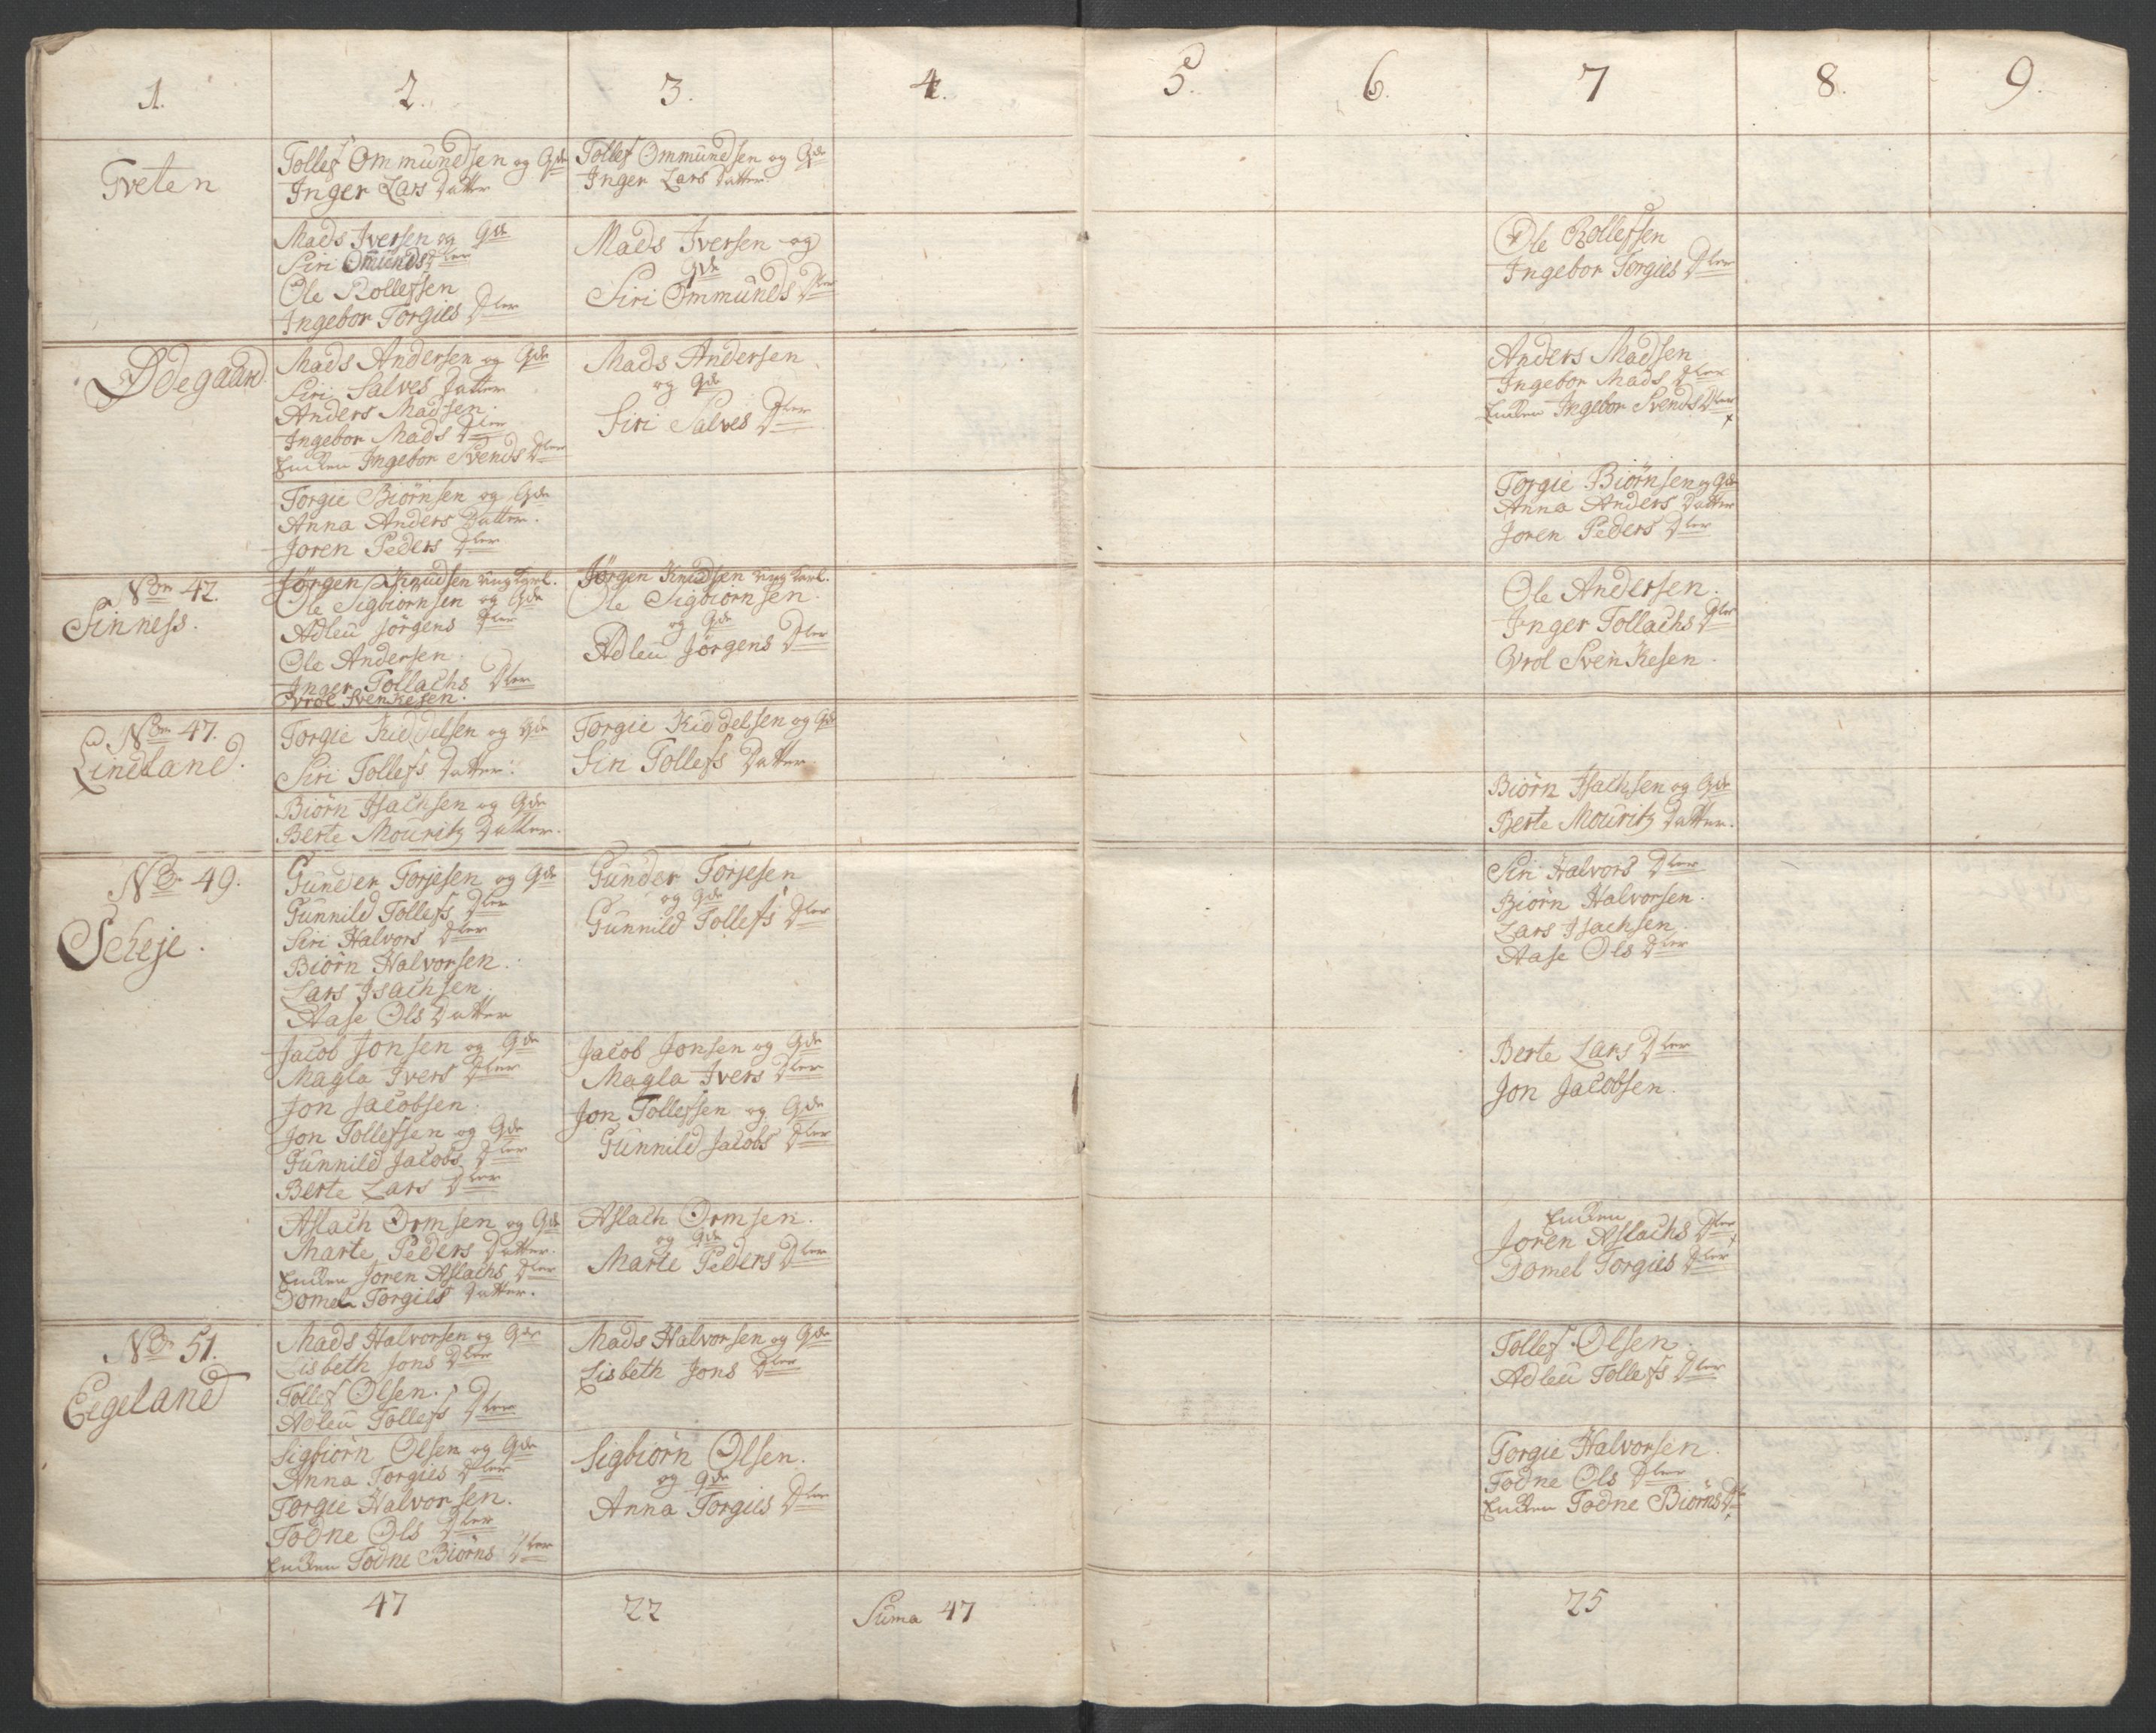 1. 2. 3. 4. 5. 6. 7 8. 9.
Tveten
Tollef Ommundsen og Gde
Inger Lars Datter
Tollef Ommundsen og Gde
Inger Lars Datter.
Mads Iversen og Gde
Siri Omunds Dter
Ole Rollefsen
Ingebor Torgies Dter
Mads Iversen og
Gde
Siri Ommunds Dter
Ole Rollefsen
Ingebor Torgies Dter
Ødegaard.
Mads Andersen og Gde
Siri Salves Datter
Anders Madsen.
Ingebor Mads Dter
Enken Ingebor Svends Dter
Mads Andersen
og Gde
Siri Salves Dter
Anders Madsen
Ingebor Mads Dter
Enken Ingebor Svends Dter
Torgie Biørnsen og Gde
Anna Anders Datter.
Joren Peders Dter
Torgie Biørnsen og Gde
Anna Anders Datter
Joren Peders Dter
Nor 42.
Sinness.
Jørgen Knudsen ung karl.
Ole Sigbiørnsen og Gde
Adleu Jørgens Dter
Ole Andersen.
Inger Tollachs Dter
Vrol Svenkesen.
Jørgen Knudsen ung karl.
Ole Sigbiørnsen.
og Gde
Adleu Jørgens Dter
Ole Andersen.
Inger Tollachs Dter
Vrol Svenkesen.
Nor 47.
Lindland.
Torgie Kiddelsen og Gde
Siri Tollefs Datter.
Torgie Kiddelsen og Gde
Siri Tollefs Datter.
Biørn Isachsen og Gde
Berte Mouritz Datter.
Biørn Isachsen og Gde
Berte Mouritz Datter.
Nor 49.
Scheje.
Gunder Torjesen og Gde
Gunnild Tollefs Dter
Siri Halvors Dter
Biørn Halvorsen.
Lars Isachsen.
Aase Ols Datter
Gunder Torjesen
og Gde
Gunnild Tollefs Dter
Siri Halvors Dter
Biørn Halvorsen.
Lars Isachsen.
Aase Ols Dter
Jacob Jonsen og Gde
Magla Ivers Dter
Jon Jacobsen.
Jon Tollefsen og Gde
Gunnild Jacobs Dter
Berte Lars Dter
Jacob Jonsen og Gde
Magla Ivers Dter
Jon Tollefsen og Gde
Gunnild Jacobs Dter
Berte Lars Dter
Jon Jacobsen.
Aslach Ormsen og Gde
Marte Peders Datter.
Enken Joren Aslachs Dter
Domel Torgies Datter.
Aslach Ormsen.
og Gde
Marte Peders Dter
Enken
Joren Aslachs Dter
Domel Torgies Dter
Nor 51.
Eegeland
Mads Halvorsen og Gde
Lisbeth Jons Dter
Tollef Olsen.
Adleu Tollefs Dter
Mads Halvorsen og Gde
Lisbeth Jons Dter
Tollef Olsen.
Adleu Tollefs Dter
Sigbiørn Olsen og Gde
Anna Torgies Dter
Torgie Halvorsen.
Todne Ols Dter
Enken Todne Biørns Dter
Sigbiørn Olsen.
og Gde
Anna Torgies Dter
Torgie Halvorsen.
Todne Ols Dter
Enken Todne Biørns Dter
47 22 Suma 47 25